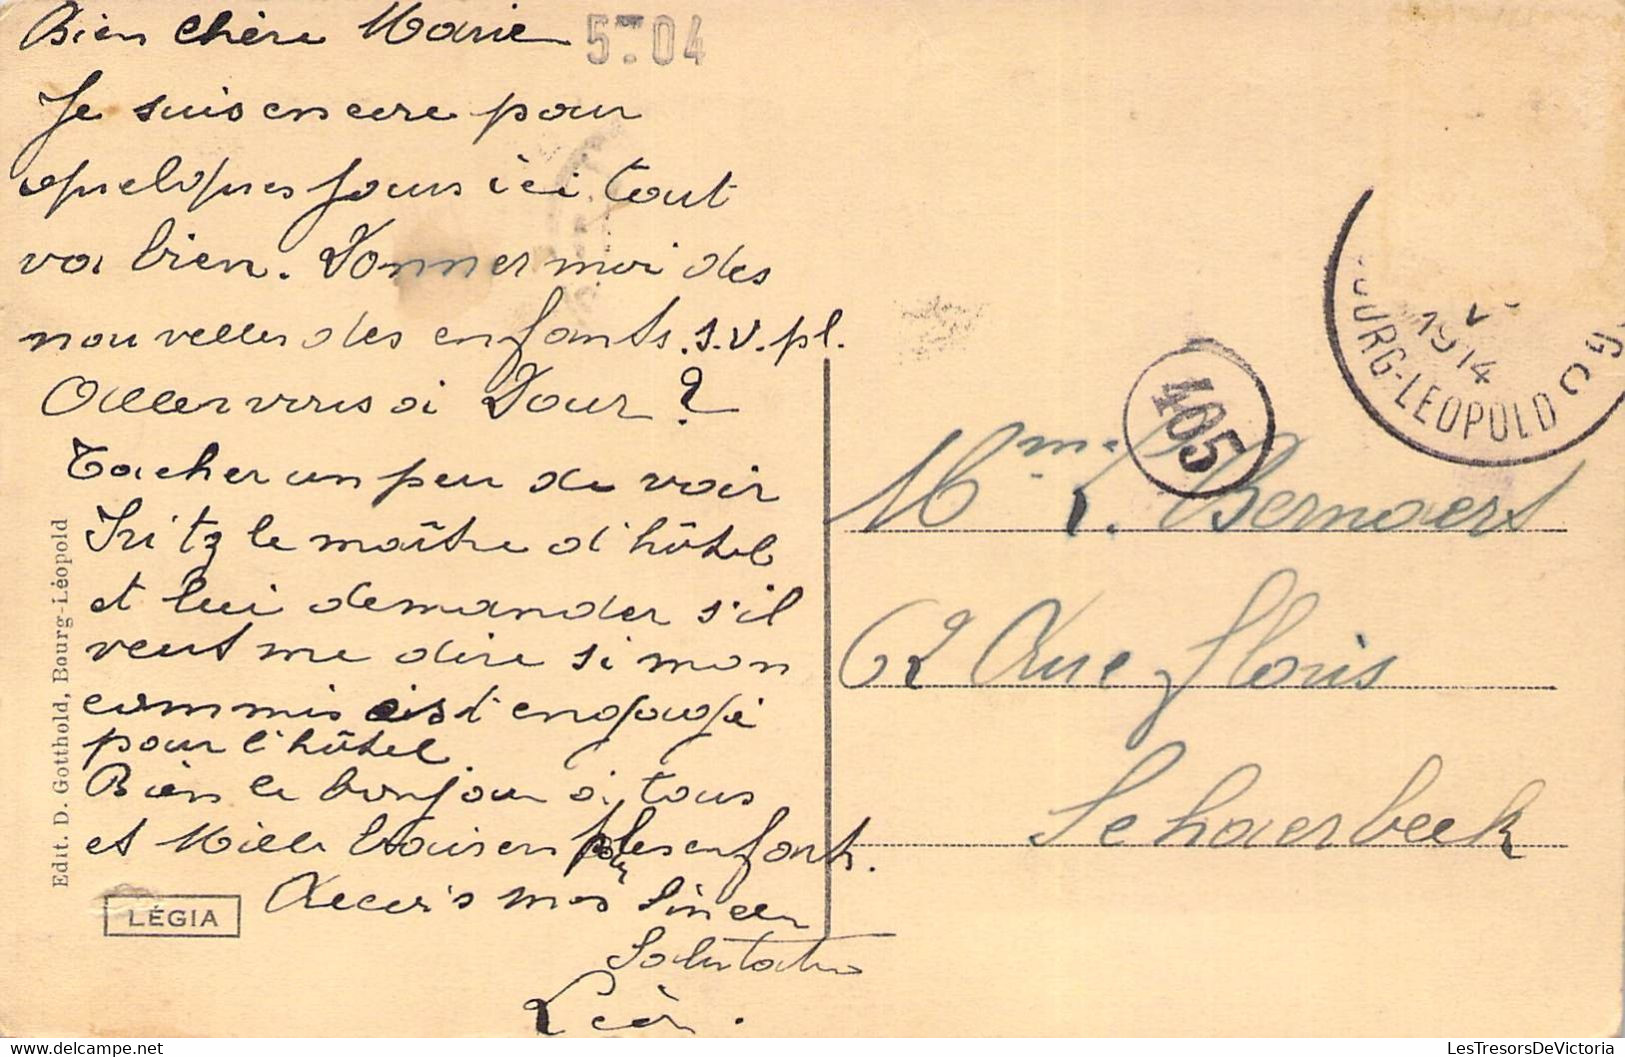 Bien chère Marie
5-04
Je suis encore pour
quelques jours ici tout
va bien. Donner moi des
nouvelles des enfants. s.v.pl.
Aller vous à Dour ?
Tacher un peu de voir
Fritz le maître d'hôtel
et lui demander s'il
veut me dire si mon
commis est engagé
pour l'hôtel
Bien le bonjour à tous
et Mille baisers pour les enfants.
Recevis mes sincer
Salutatio
Léon.
Edit. D. Gotthold, Bourg-Léopold
LÉGIA
405
1914
BOURG-LEOPOLD
Mme L. Bernaerts
62 Rue Floris
Schaerbeek
LesTresorsDeVictoria